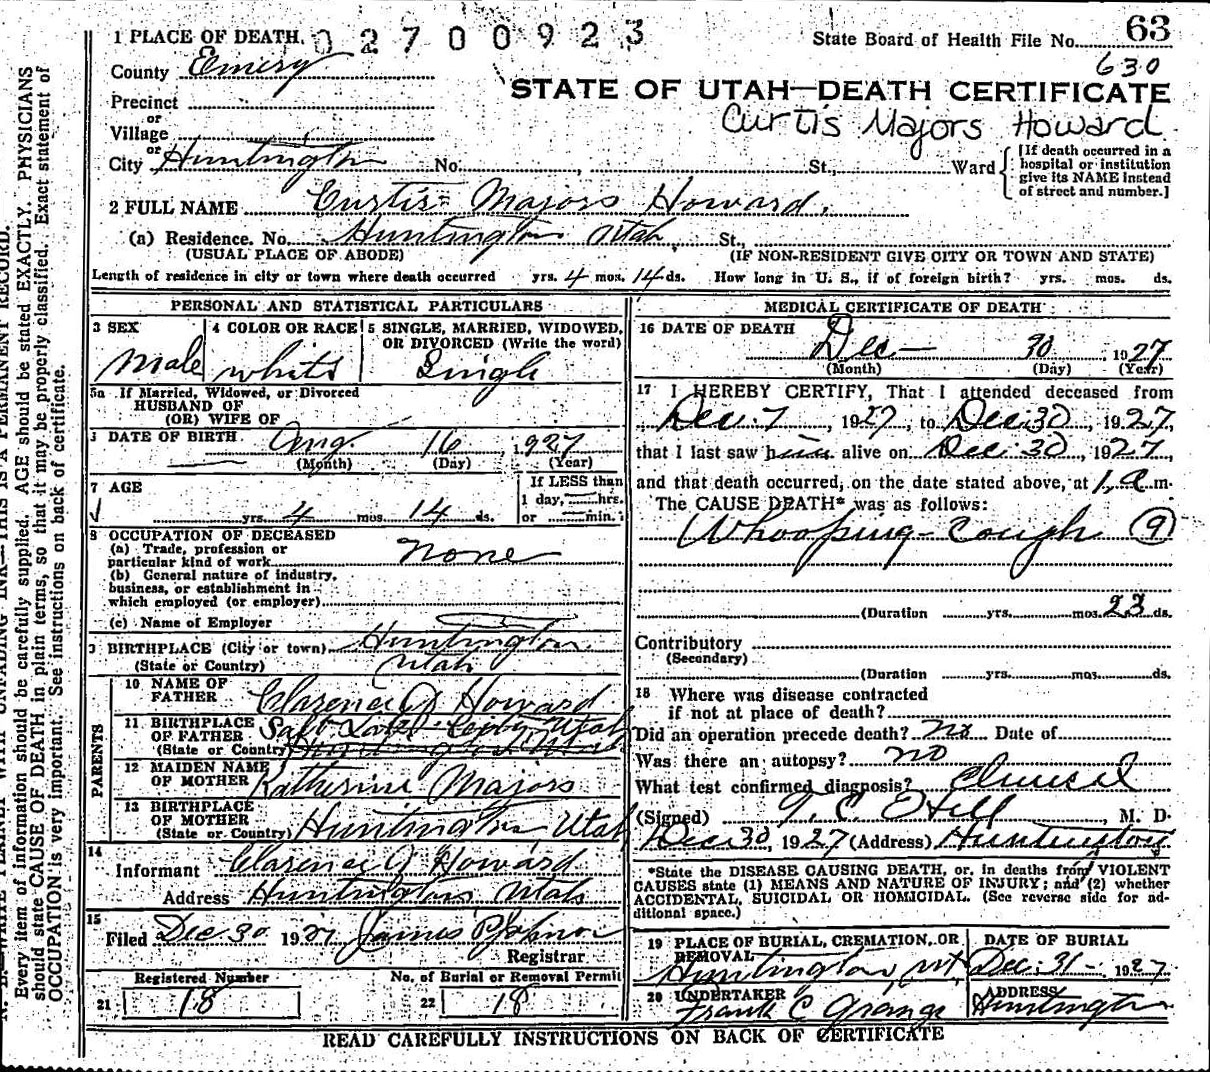 1 PLACE OF DEATH. 02700923 State Board of Health File No. 63
County Emery 630
STATE OF UTAH—DEATH CERTIFICATE
Precinct
or
Curtis Majors Howard
Village
or
City Huntington No. , St., Ward
[If death occurred in a hospital or institution give its NAME instead of street and number.]
2 FULL NAME Curtis Majors Howard.
(a) Residence. No. Huntington Utah, St.,
(USUAL PLACE OF ABODE) (IF NON-RESIDENT GIVE CITY OR TOWN AND STATE)
Length of residence in city or town where death occurred yrs. 4 mos. 14 ds. How long in U. S., if of foreign birth? yrs. mos. ds.
PERSONAL AND STATISTICAL PARTICULARS
3 SEX 4 COLOR OR RACE 5 SINGLE, MARRIED, WIDOWED, OR DIVORCED (Write the word)
Male white Single
5a If Married, Widowed, or Divorced
HUSBAND OF
(OR) WIFE OF
DATE OF BIRTH Aug. 16 1927
(Month) (Day) (Year)
7 AGE If LESS than
1 day, hrs.
yrs. 4 mos. 14 ds. or min.
8 OCCUPATION OF DECEASED
(a) Trade, profession or
particular kind of work None
(b) General nature of industry,
business, or establishment in
which employed (or employer)
(c) Name of Employer
BIRTHPLACE (City or town) Huntington
(State or Country) Utah
PARENTS
10 NAME OF FATHER Clarence J Howard
11 BIRTHPLACE OF FATHER Salt Lake City Utah
(State or Country) Huntington Utah
12 MAIDEN NAME OF MOTHER Katherine Majors
13 BIRTHPLACE OF MOTHER
(State or Country) Huntington Utah
14
Informant Clarence J Howard
Address Huntington Utah
15
Filed Dec 30 1927 James P Johnson
Registrar
Registered Number No. of Burial or Removal Permit
21 18 22 18
MEDICAL CERTIFICATE OF DEATH
16 DATE OF DEATH Dec— 30 1927
(Month) (Day) (Year)
17 I HEREBY CERTIFY, That I attended deceased from
Dec. 7, 1927, to Dec. 30, 1927,
that I last saw him alive on Dec 30, 1927,
and that death occurred, on the date stated above, at 1 a m.
The CAUSE DEATH* was as follows:
Whooping Cough 9
(Duration yrs. mos. 23 ds.
Contributory
(Secondary)
(Duration yrs. mos. ds.
18 Where was disease contracted
if not at place of death?
Did an operation precede death? No Date of
Was there an autopsy? no
What test confirmed diagnosis? Clinical
(Signed) T. C. Hill, M. D.
Dec 30, 1927 (Address) Huntington
*State the DISEASE CAUSING DEATH, or, in deaths from VIOLENT
CAUSES state (1) MEANS AND NATURE OF INJURY; and (2) whether
ACCIDENTAL, SUICIDAL OR HOMICIDAL. (See reverse side for ad-
ditional space.)
19 PLACE OF BURIAL, CREMATION, OR REMOVAL DATE OF BURIAL
Huntington, Ut. Dec. 31- 1927
20 UNDERTAKER ADDRESS
Frank C Grange Huntington
READ CAREFULLY INSTRUCTIONS ON BACK OF CERTIFICATE
Every item of information should be carefully supplied. AGE should be stated EXACTLY. PHYSICIANS
should state CAUSE OF DEATH in plain terms, so that it may be properly classified. Exact statement of
OCCUPATION is very important. See instructions on back of certificate.